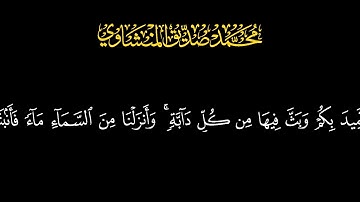 محمد صديق المنشاوي
تَمِيدَ بِكُمْ وَبَثَّ فِيهَا مِن كُلِّ دَآبَّةٍ ۚ وَأَنزَلْنَا مِنَ ٱلسَّمَآءِ مَآءً